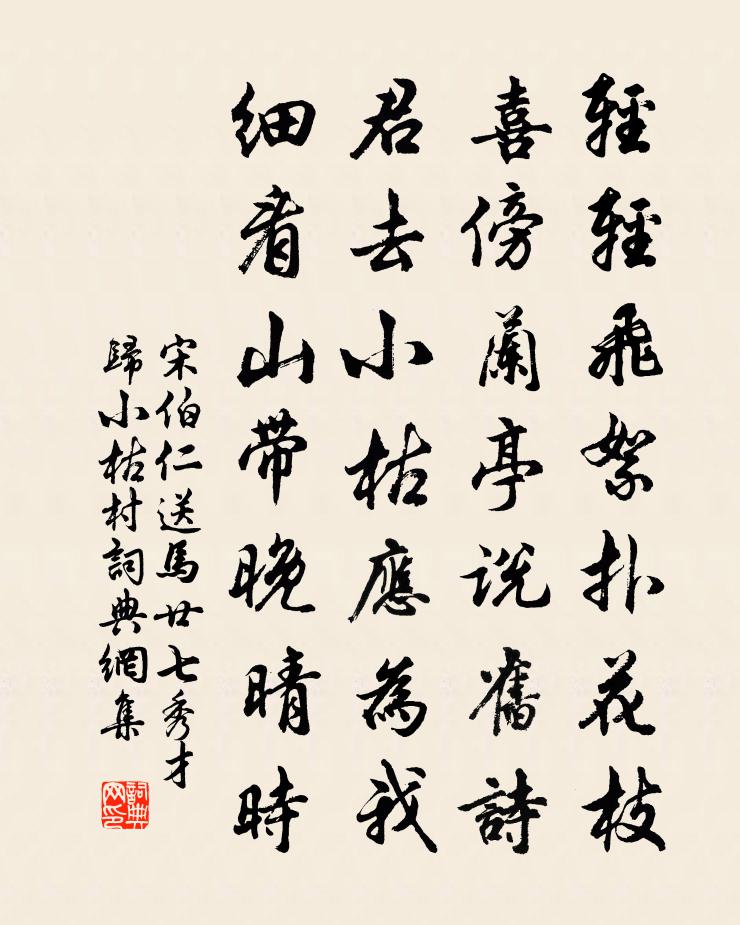 輕輕飛絮扑花枝
喜傍蘭亭説舊詩
君去小枯應為我
细看山带晚晴時
宋伯仁送馬廿七秀才
歸小枯村詞典網集
詞典网印